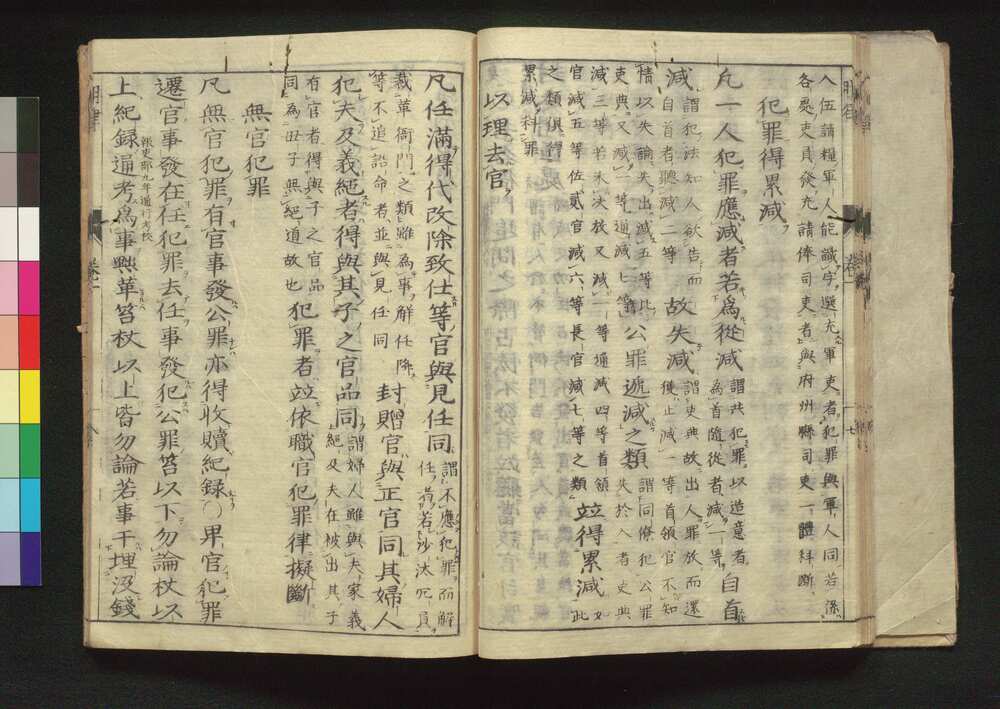 入伍請糧軍人能識字選充軍吏者犯罪與軍人同若係
各處吏員發充請俸司吏者與府州縣司吏一體科斷
犯罪得累減
凡一人犯罪應減者若爲從減謂共犯罪以造意者爲首隨從者減一等自首
減謂犯法知人欲告而自首者聽減二等故失減謂吏典故出人罪放而還獲止減一等首領官不知
情以失論失出減五等比吏典又減一等通減七等公罪遞減之類謂同僚犯公罪失於入者吏典
減三等若未決放又減一等通減四等首領官減五等佐貳官減六等長官減七等之類並得累減如此
之類俱得累減科罪
以理去官
凡任滿得代改除致仕等官與見任同謂不應犯罪而解任者若沙汰冗員
裁革衙門之類雖爲事解任降等不追誥命者並與見任同封贈官與正官同其婦人
犯夫及義絕者得與其子之官品同謂婦人雖與夫家義絕及夫在被出其子
有官者得與子之官品同爲母子無絕道故也犯罪者並依職官犯罪律擬斷
無官犯罪
凡無官犯罪有官事發公罪亦得收贖紀録○卑官犯罪
遷官事發在任犯罪去任事發犯公罪笞以下勿論杖以
報吏部九年通行考校
上紀録通考爲事黜革笞杖以上皆勿論若事干埋沒錢